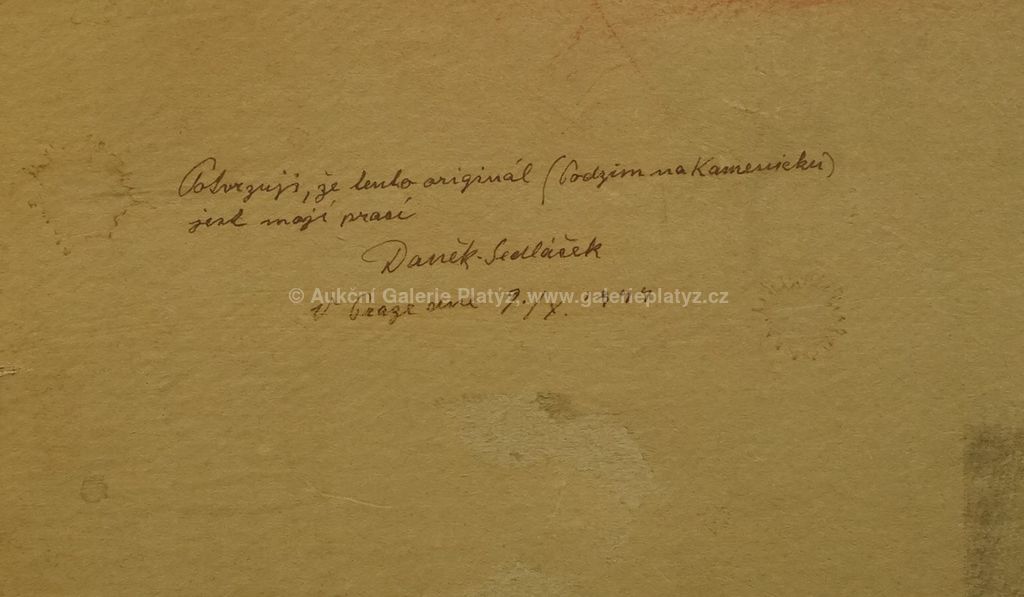 Potvrzuji, že tento originál (Podzim na Kamenicku)
jest mojí prací
Daněk-Sedláček
© Aukční Galerie Platýz, www.galerieplatyz.cz
V Praze dne